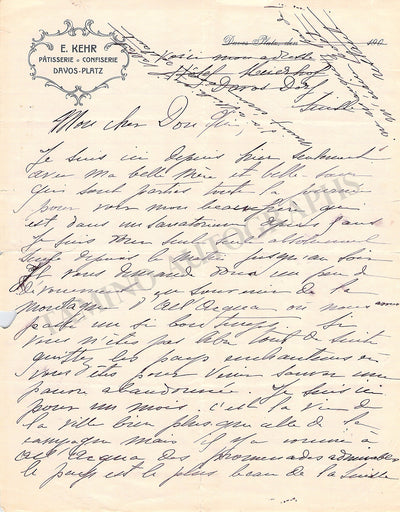 E. KEHR
PÂTISSERIE & CONFISERIE
DAVOS-PLATZ
Davos-Platz, den 190
Voici mon adresse
Hôtel Meierhof
Davos Dorf
Suisse
Mon cher Don
Je suis ici depuis hier seulement
avec ma belle mère et belle sœur
qui sont parties toute la journée
pour voir mon beau frère qui
est dans un sanatorium depuis 2 ans
Je suis bien seule absolument
seule depuis le matin jusqu'au soir
Je vous demande donc un peu de
dévouement au souvenir de la
montagne d'All'Acqua où nous avons
passé un si bon temps. Si
vous n'êtes pas là tout de suite
quittez les pays enchanteurs où
vous êtes pour venir sauver une
pauvre abandonnée. Je suis ici
pour un mois. c'est la vie de
la ville bien plus que celle de la
campagne mais il y a comme à
All'Acqua des promenades admirables
le pays est le plus beau de la Suisse
TAMINO AUTOGRAPHS